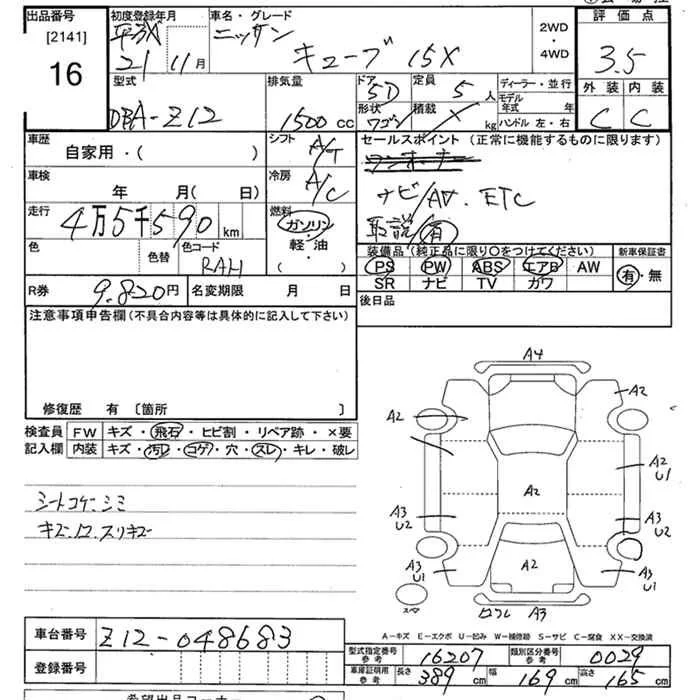 出品番号 [2141] 16
初度登録年月 平成 21年 11月
車名・グレード ニッサン キューブ 15X
2WD・4WD
評価点 3.5
外装 内装
C C
型式 DBA-Z12
排気量 1500cc
ドア 5D
形状 ワゴン
定員 5人
積載 kg
ディーラー・並行
モデル年式 年
ハンドル 左・右
車歴 自家用・( )
シフト A/T
車検 年 月(日)
冷房 A/C
走行 4万5千590km
燃料 ガソリン・軽・油 ( )
色 色替 色コード RAH
セールスポイント (正常に機能するものに限ります)
ワンオーナー
ナビ/AV. ETC
取説 有
装備品 (純正品に限り○をつけてください)
PS PW ABS エアB AW
SR ナビ TV カワ
新車保証書 有・無
R券 9.820円
名変期限 月 日
後日品
注意事項申告欄 (不具合内容等は具体的に記入して下さい)
修復歴 有 〔箇所 〕
検査員記入欄
FW キズ・飛石・ヒビ割・リペア跡・×要
内装 キズ・汚レ・コゲ・穴・スレ・キレ・破レ
シートコゲ・シミ
A4
A2
A2
A2
U1
A2
A3
U2
A3
U2
A2
A3
U1
A3
U1
A3
A-キズ E-エクボ U-凹み W-補修跡 S-サビ C-腐食 XX-交換済
車台番号 Z12-048683
登録番号
型式指定番号 参考 16207
類別区分番号 参考 0029
車庫証明用 参考 長さ 389cm 幅 169cm 高さ 165cm
希望出品コーナー